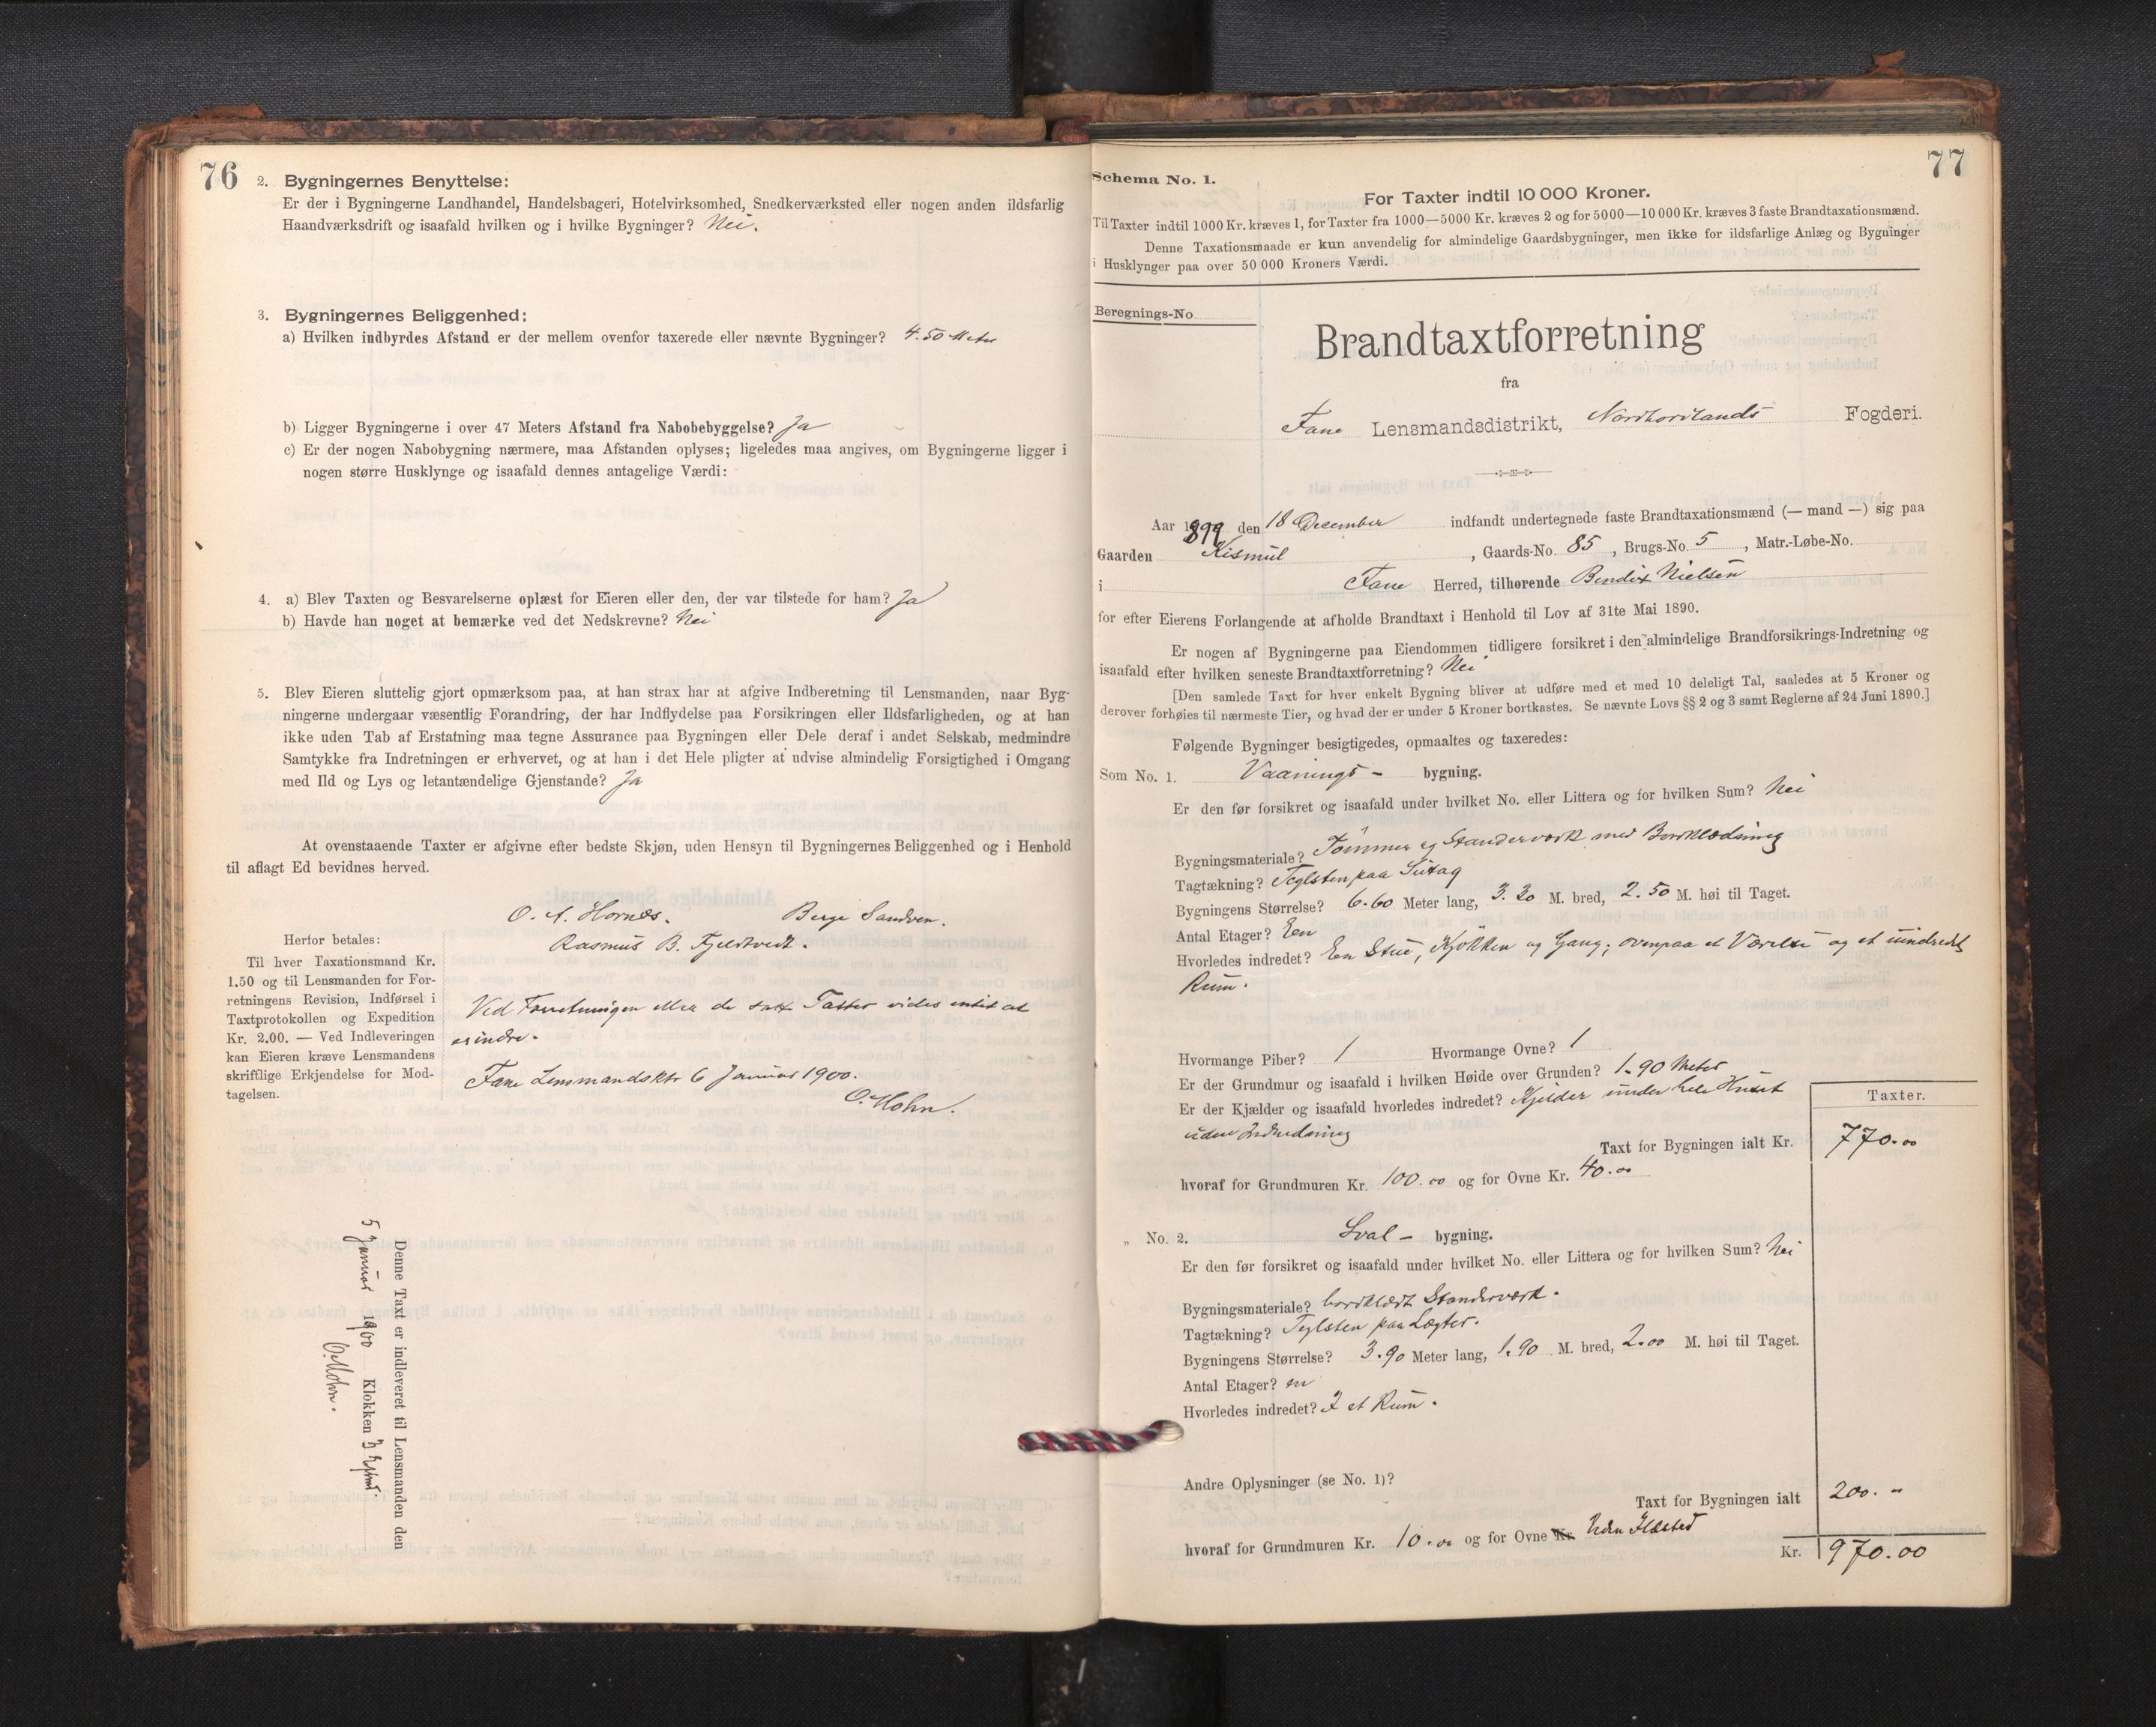 76
2. Bygningernes Benyttelse:
Er der i Bygningerne Landhandel, Handelsbageri, Hotelvirksomhed, Snedkerværksted eller nogen anden ildsfarlig
Haandværksdrift og isaafald hvilken og i hvilke Bygninger? Nei.
3. Bygningernes Beliggenhed:
a) Hvilken indbyrdes Afstand er der mellem ovenfor taxerede eller nævnte Bygninger? 4.50 Meter
b) Ligger Bygningerne i over 47 Meters Afstand fra Nabobebyggelse? Ja
c) Er der nogen Nabobygning nærmere, maa Afstanden oplyses; ligeledes maa angives, om Bygningerne ligger i
nogen større Husklynge og isaafald dennes antagelige Værdi:
4. a) Blev Taxten og Besvarelserne oplæst for Eieren eller den, der var tilstede for ham? Ja
b) Havde han noget at bemærke ved det Nedskrevne? Nei
5. Blev Eieren sluttelig gjort opmærksom paa, at han strax har at afgive Indberetning til Lensmanden, naar Byg-
ningerne undergaar væsentlig Forandring, der har Indflydelse paa Forsikringen eller Ildsfarligheden, og at han
ikke uden Tab af Erstatning maa tegne Assurance paa Bygningen eller Dele deraf i andet Selskab, medmindre
Samtykke fra Indretningen er erhvervet, og at han i det Hele pligter at udvise almindelig Forsigtighed i Omgang
med Ild og Lys og letantændelige Gjenstande? Ja
At ovenstaaende Taxter er afgivne efter bedste Skjøn, uden Hensyn til Bygningernes Beliggenhed og i Henhold
til aflagt Ed bevidnes herved.
O. A. Hornes. Berge Sandven.
Rasmus B. Fjeldtvedt.
Herfor betales:
Til hver Taxationsmand Kr.
1.50 og til Lensmanden for For-
retningens Revision, Indførsel i
Taxtprotokollen og Expedition
Kr. 2.00. — Ved Indleveringen
kan Eieren kræve Lensmandens
skriftlige Erkjendelse for Mod-
tagelsen.
Ved Forretningen eller de satte Taxter vides intet at
erindre.
Fane Lensmandsktr 6 Januar 1900.
O. Mohn.
Denne Taxt er indleveret til Lensmanden den
5 Januar 1900 Klokken 3 Eftmd.
O. Mohn.
77
Schema No. 1.
For Taxter indtil 10 000 Kroner.
Til Taxter indtil 1000 Kr. kræves 1, for Taxter fra 1000—5000 Kr. kræves 2 og for 5000—10 000 Kr. kræves 3 faste Brandtaxationsmænd.
Denne Taxationsmaade er kun anvendelig for almindelige Gaardsbygninger, men ikke for ildsfarlige Anlæg og Bygninger
i Husklynger paa over 50 000 Kroners Værdi.
Beregnings-No
Brandtaxtforretning
fra
Fane Lensmandsdistrikt, Nordhordlands Fogderi.
Aar 1899 den 18 December indfandt undertegnede faste Brandtaxationsmænd (— mand —) sig paa
Gaarden Kismul, Gaards-No. 85, Brugs-No. 5, Matr.-Løbe-No.
i Fane Herred, tilhørende Bendix Nielsen
for efter Eierens Forlangende at afholde Brandtaxt i Henhold til Lov af 31te Mai 1890.
Er nogen af Bygningerne paa Eiendommen tidligere forsikret i den almindelige Brandforsikrings-Indretning og
isaafald efter hvilken seneste Brandtaxtforretning? Nei
[Den samlede Taxt for hver enkelt Bygning bliver at udføre med et med 10 deleligt Tal, saaledes at 5 Kroner og
derover forhøies til nærmeste Tier, og hvad der er under 5 Kroner bortkastes. Se nævnte Lovs §§ 2 og 3 samt Reglerne af 24 Juni 1890.]
Følgende Bygninger besigtigedes, opmaaltes og taxeredes:
Som No. 1. Vaanings- bygning.
Er den før forsikret og isaafald under hvilket No. eller Littera og for hvilken Sum? Nei
Bygningsmateriale? Tømmer og Standerværk med Bordklædning
Tagtækning? Teglsten paa Sutag
Bygningens Størrelse? 6.60 Meter lang, 3.20 M. bred, 2.50 M. høi til Taget.
Antal Etager? Een
Hvorledes indredet? En Stue, Kjøkken og Gang; ovenpaa et Værelse og et uindredet
Rum.
Hvormange Piber? 1 Hvormange Ovne? 1
Er der Grundmur og isaafald i hvilken Høide over Grunden? 1.90 Meter
Er der Kjælder og isaafald hvorledes indredet? Kjelder under hele Huset
uden Indredning
Taxter.
Taxt for Bygningen ialt Kr. 770.00
hvoraf for Grundmuren Kr. 100.00 og for Ovne Kr. 40.00
„ No. 2. Sval- bygning.
Er den før forsikret og isaafald under hvilket No. eller Littera og for hvilken Sum? Nei
Bygningsmateriale? bordklædt Standerværk.
Tagtækning? Teglsten paa Lægter.
Bygningens Størrelse? 3.90 Meter lang, 1.90 M. bred, 2.00 M. høi til Taget.
Antal Etager? en
Hvorledes indredet? I et Rum.
Andre Oplysninger (se No. 1)?
Taxt for Bygningen ialt 200. „
hvoraf for Grundmuren Kr. 10.00 og for Ovne Kr. Uden Ildsted
Kr. 970.00